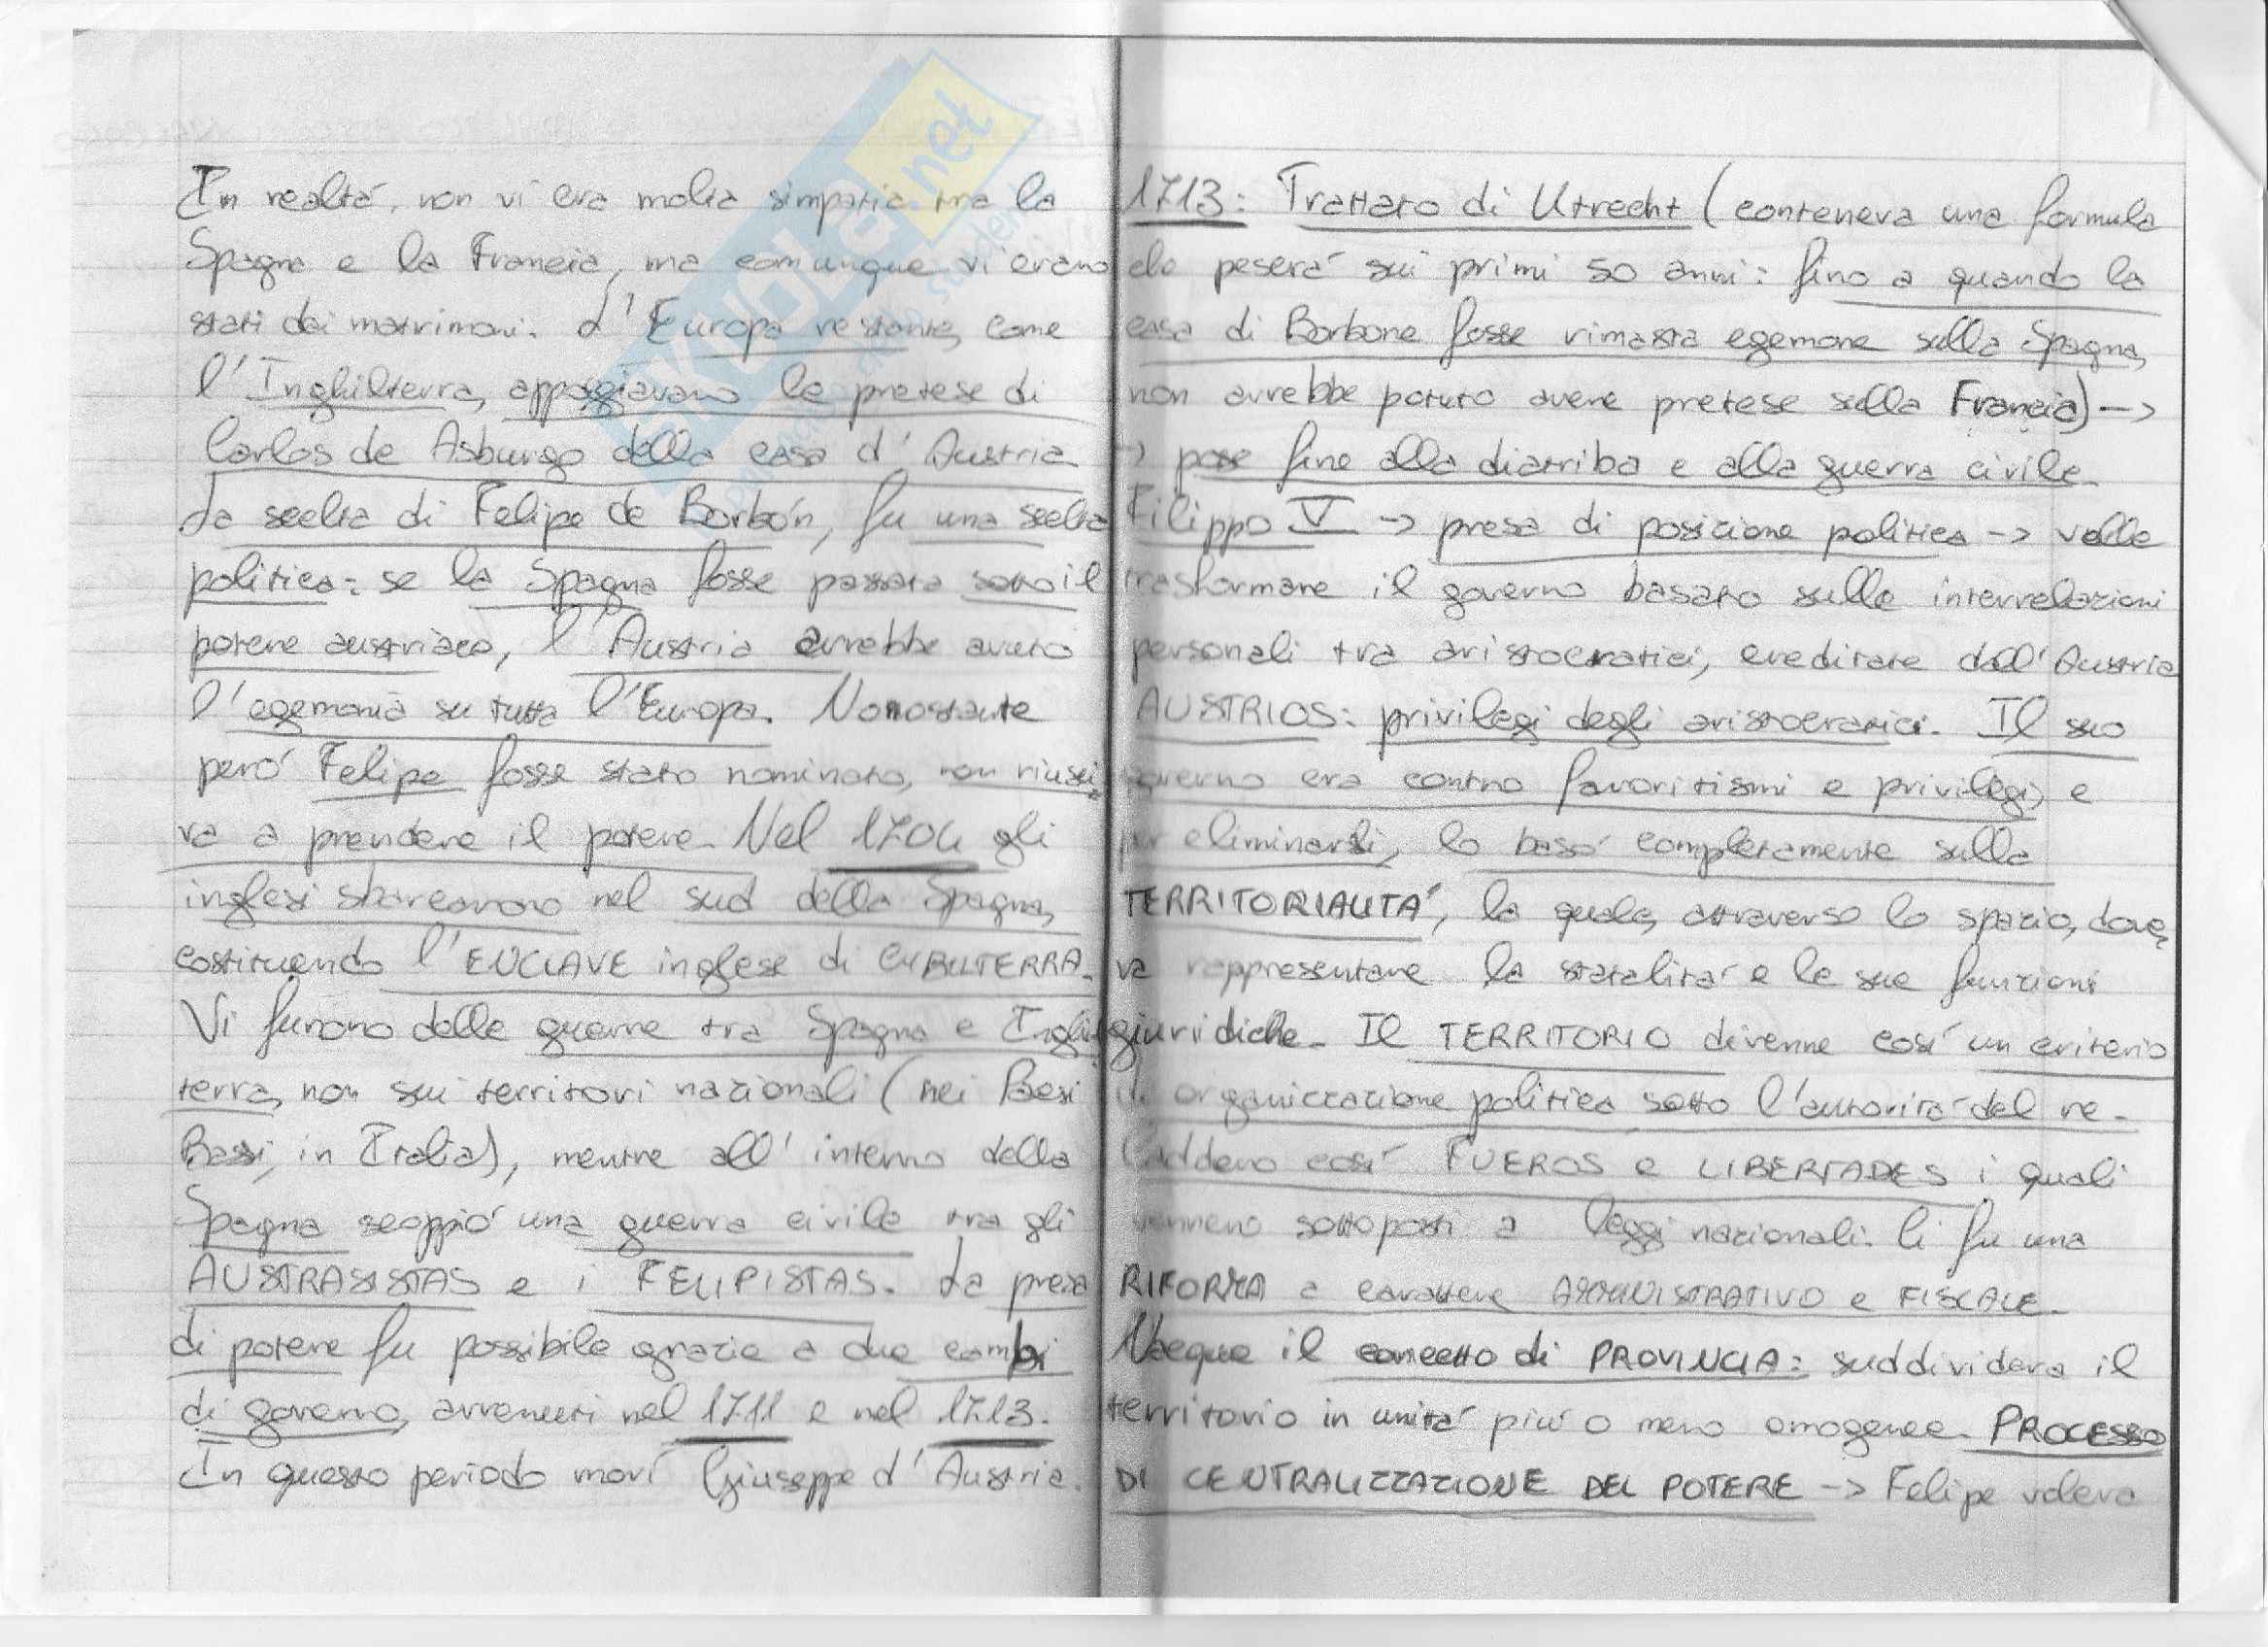 In realtà, non vi era molta simpatia tra la
Spagna e la Francia, ma comunque vi erano
stati dei matrimoni. L'Europa restante, come
l'Inghilterra, appoggiavano le pretese di
Carlos de Asburgo della casa d'Austria
La scelta di Felipe de Borbón, fu una scelta
politica: se la Spagna fosse passata sotto il
potere austriaco, l'Austria avrebbe avuto
l'egemonia su tutta l'Europa. Nonostante
però Felipe fosse stato nominato, non riusci
va a prendere il potere. Nel 1704 gli
inglesi sbarcarono nel sud della Spagna,
costituendo l'ENCLAVE inglese di GIBILTERRA.
Vi furono delle guerre tra Spagna e Inghil
terra, non sui territori nazionali (nei Paesi
Bassi, in Italia), mentre all'interno della
Spagna scoppiò una guerra civile tra gli
AUSTRASISTAS e i FELIPISTAS. La presa
di potere fu possibile grazie a due cambi
di governo, avvenuti nel 1711 e nel 1713.
In questo periodo morì Giuseppe d'Austria.
1713: Trattato di Utrecht (conteneva una formula
che peserà sui primi 50 anni: fino a quando la
casa di Borbone fosse rimasta egemone sulla Spagna,
non avrebbe potuto avere pretese sulla Francia) ->
-> pose fine alla diatriba e alla guerra civile.
Filippo V -> presa di posizione politica -> volle
trasformare il governo basato sulle interrelazioni
personali tra aristocratici, ereditate dall'Austria
AUSTRIOS: privilegi degli aristocratici. Il suo
governo era contro favoritismi e privilegi e
per eliminarli, lo basò completamente sulla
TERRITORIALITÀ, la quale, attraverso lo spazio, dove
va rappresentare la statalità e le sue funzioni
giuridiche. Il TERRITORIO divenne così un criterio
di organizzazione politica sotto l'autorità del re.
Caddero così FUEROS e LIBERTADES i quali
vennero sottoposti a leggi nazionali. Ci fu una
RIFORMA a carattere AMMINISTRATIVO e FISCALE.
Nacque il concetto di PROVINCIA: suddivideva il
territorio in unità più o meno omogenee. PROCESSO
DI CENTRALIZZAZIONE DEL POTERE -> Felipe voleva
SKUOLA.net